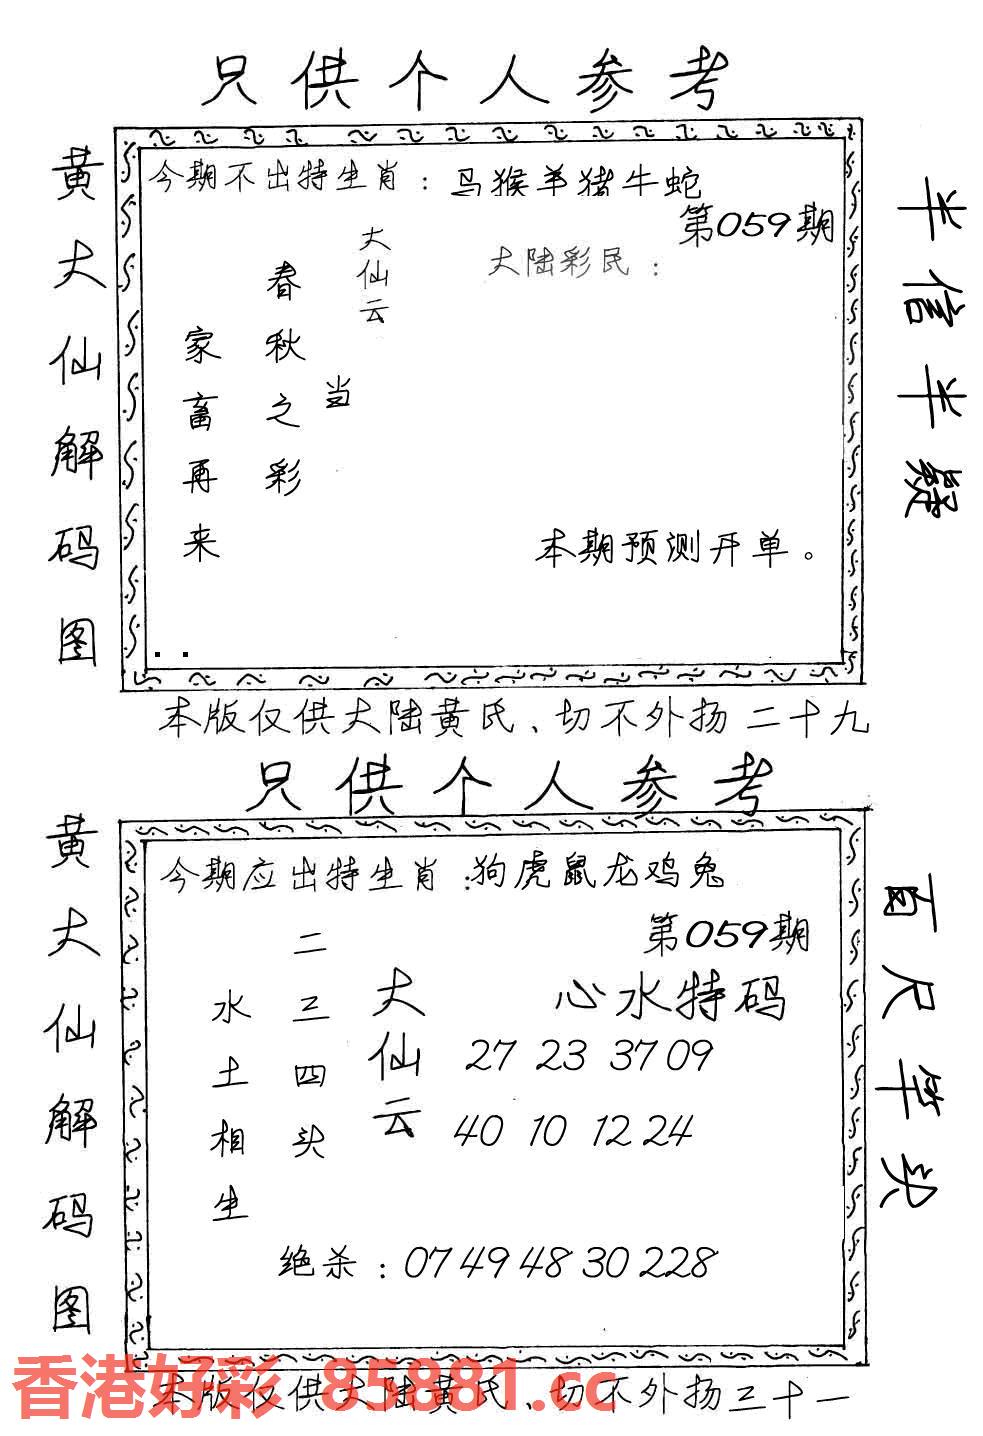 只供个人参考
黄大仙解码图
今期不出特生肖：马猴羊猪牛蛇
第059期
大陆彩民：
大仙云
当
春秋之彩
家畜再来
本期预测开单。
半信半疑
本版仅供大陆黄氏、切不外扬二十九
只供个人参考
黄大仙解码图
今期应出特生肖：狗虎鼠龙鸡兔
第059期
心水特码
大仙云
二三四头
水土相生
27 23 37 09
40 10 12 24
绝杀：07 49 48 30 228
百尺竿头
本版仅供大陆黄氏、切不外扬三十一
香港好彩 85881.cc